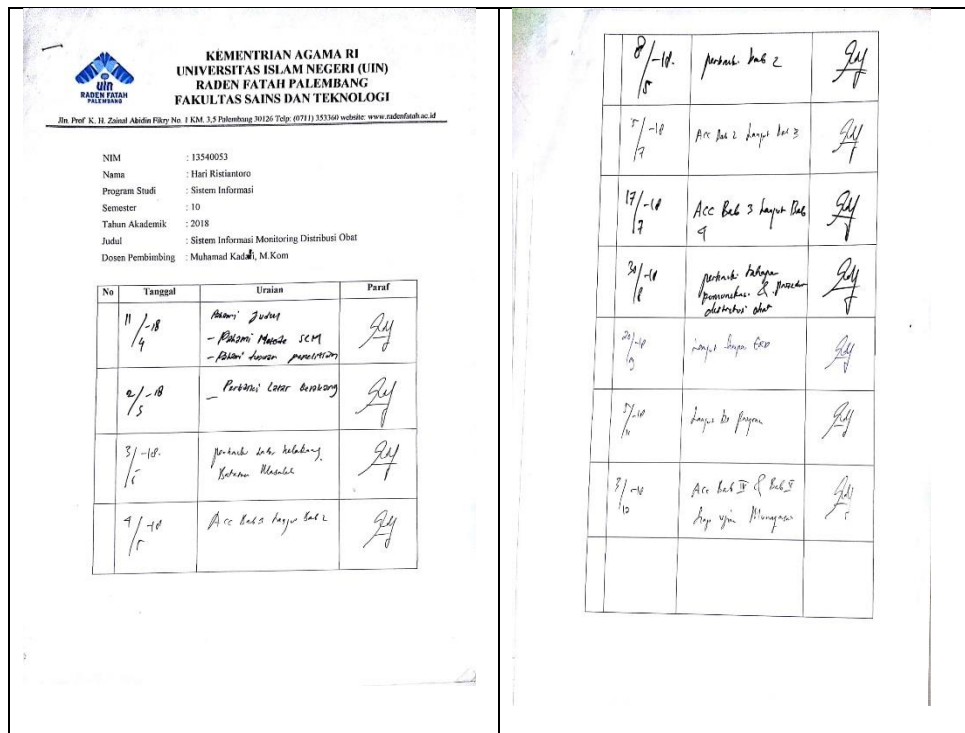 uin
RADEN FATAH
PALEMBANG
KEMENTRIAN AGAMA RI
UNIVERSITAS ISLAM NEGERI (UIN)
RADEN FATAH PALEMBANG
FAKULTAS SAINS DAN TEKNOLOGI
Jln. Prof K. H. Zainal Abidin Fikry No. 1 KM. 3,5 Palembang 30126 Telp: (0711) 353360 website: www.radenfatah.ac.id
NIM : 13540053
Nama : Hari Ristiantoro
Program Studi : Sistem Informasi
Semester : 10
Tahun Akademik : 2018
Judul : Sistem Informasi Monitoring Distribusi Obat
Dosen Pembimbing : Muhamad Kadafi, M.Kom
No Tanggal Uraian Paraf
11/4 -18 Pahami Judul
- Pahami Metode SCM
- Pahami tujuan penelitian
2/5 -18 - Perbaiki Latar Belakang
3/ -18. perbaiki latar belakang
Batasan Masalah
4/ -18 Acc Bab 1 Lanjut Bab 2
8/5 -18. perbaiki bab 2
5/7 -18 Acc Bab 2 Lanjut bab 3
17/7 -18 Acc Bab 3 Lanjut Bab
4
30/8 -18 perbaiki tahapan
komunikasi & prosedur
distribusi obat
20/9 -18 Lanjut ERD
5/11 -18 Lanjut ke program
3/12 -18 Acc Bab IV & Bab V
siap ujian Munaqasah